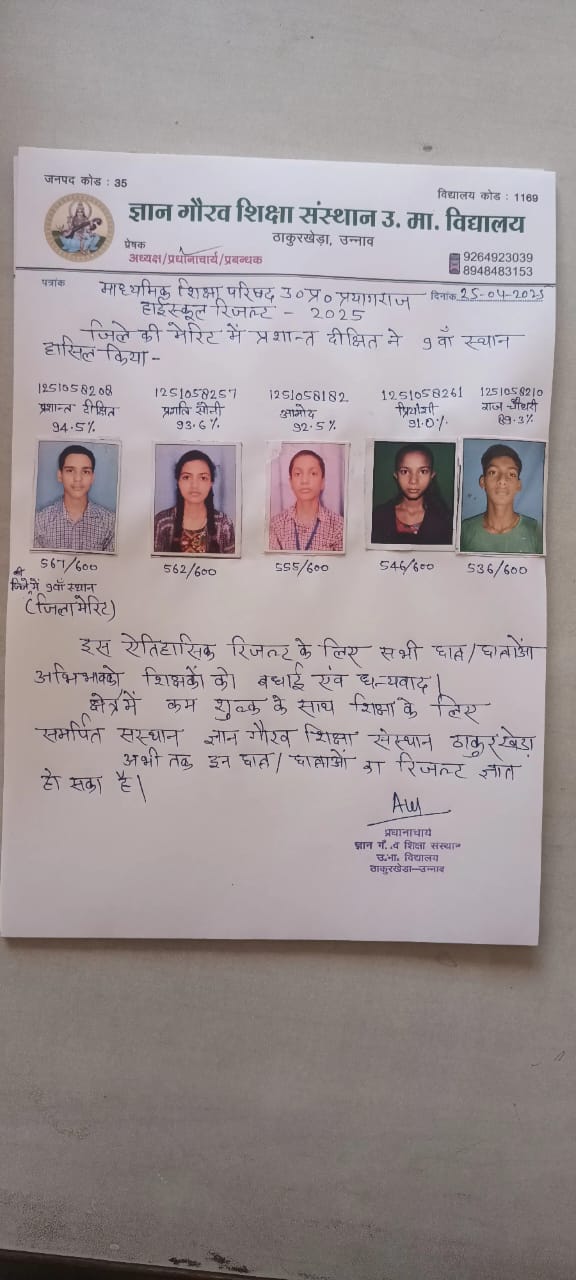 जनपद कोड : 35
विद्यालय कोड : 1169
ज्ञान गौरव शिक्षा संस्थान उ. मा. विद्यालय
ठाकुरखेड़ा, उन्नाव
प्रेषक
अध्यक्ष/प्रधानाचार्य/प्रबन्धक
9264923039
8948483153
पत्रांक
दिनांक 25-04-2025
माध्यमिक शिक्षा परिषद उ०प्र० प्रयागराज
हाईस्कूल रिजल्ट - 2025
जिले की मेरिट में प्रशान्त दीक्षित ने 9वाँ स्थान
हासिल किया -
1251058208 1251058257 1251058182 1251058261 1251058210
प्रशान्त दीक्षित प्रगति सैनी आमोद प्रियांशी राज चौधरी
94.5% 93.6% 92.5% 91.0% 89.3%
567/600 562/600 555/600 546/600 536/600
जिले में 9वाँ स्थान
(जिला मेरिट)
इस ऐतिहासिक रिजल्ट के लिए सभी छात्र/छात्राओं
अभिभावको शिक्षकों को बधाई एवं धन्यवाद।
क्षेत्र में कम शुल्क के साथ शिक्षा के लिए
समर्पित संस्थान ज्ञान गौरव शिक्षा संस्थान ठाकुरखेड़ा
अभी तक इन छात्र/छात्राओं का रिजल्ट ज्ञात
हो सका है।
प्रधानाचार्य
ज्ञान गौरव शिक्षा संस्थान
उ.मा. विद्यालय
ठाकुरखेड़ा-उन्नाव